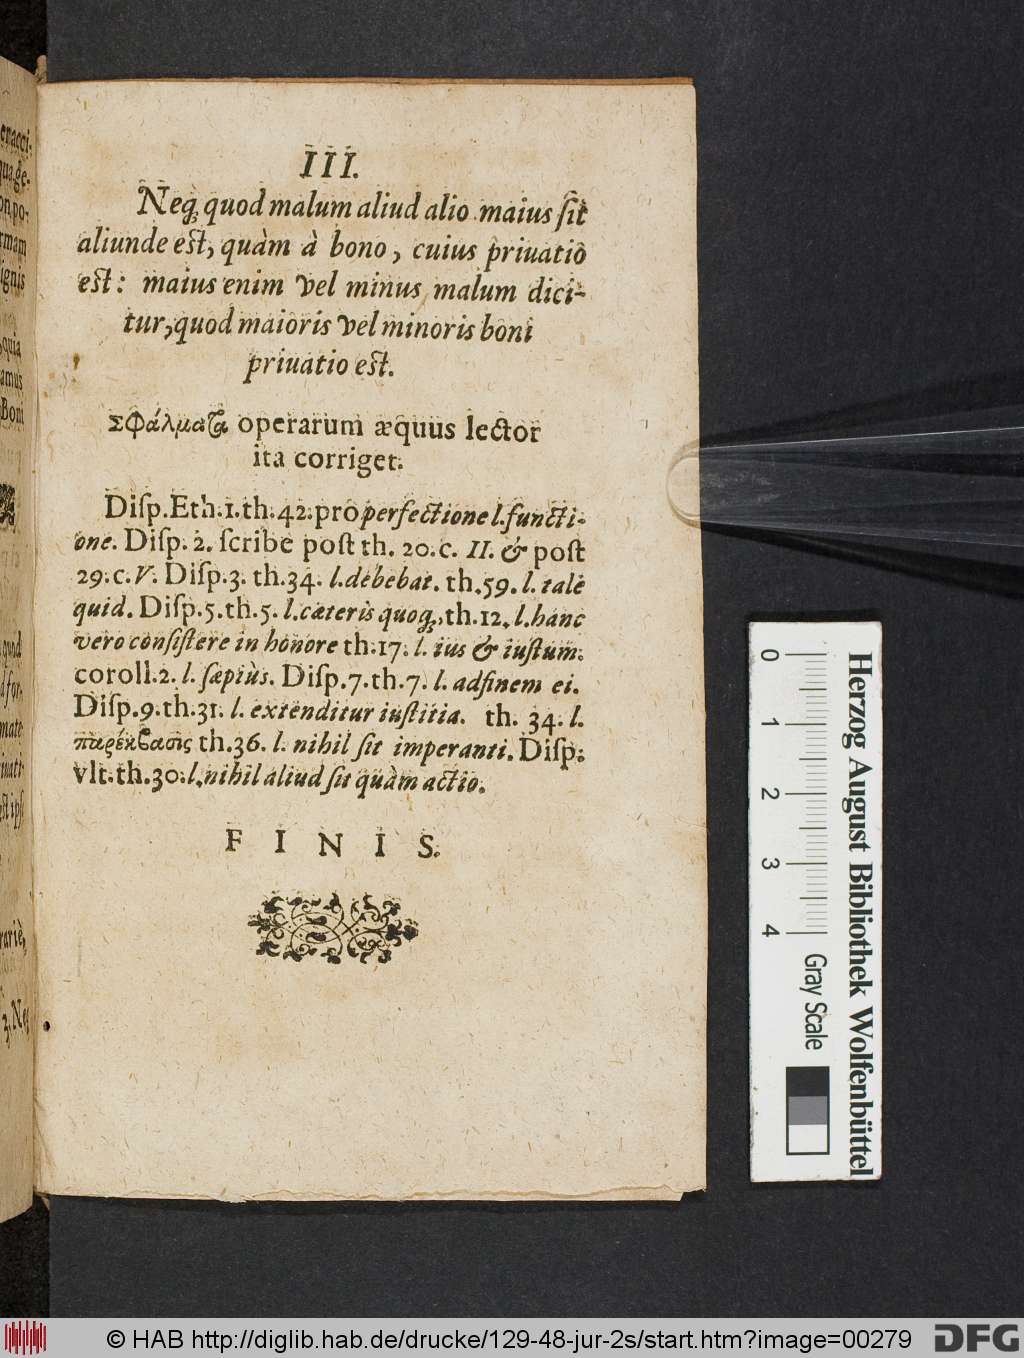 III.
Neq; quod malum aliud alio maius ſit
aliunde eſt, quàm à bono, cuius priuatio
eſt: maius enim vel minus malum dici-
tur, quod maioris vel minoris boni
priuatio eſt.
Σφάλματα operarum æquus lector
ita corriget.
Diſp. Eth. 1. th. 42. pro perfectione l. functi-
one. Diſp. 2. ſcribe poſt th. 20. c. II. & poſt
29. c. V. Diſp. 3. th. 34. l. debebat. th. 59. l. tale
quid. Diſp. 5. th. 5. l. cæteris quoq;, th. 12. l. hanc
vero conſiſtere in honore th. 17. l. ius & iuſtum.
coroll. 2. l. ſæpiùs. Diſp. 7. th. 7. l. adfinem ei.
Diſp. 9. th. 31. l. extenditur iuſtitia. th. 34. l.
παρέκβασις th. 36. l. nihil ſit imperanti. Diſp.
vlt. th. 30. l. nihil aliud ſit quàm actio.
FINIS.
0 1 2 3 4 Gray Scale
Herzog August Bibliothek Wolfenbüttel
© HAB http://diglib.hab.de/drucke/129-48-jur-2s/start.htm?image=00279
DFG